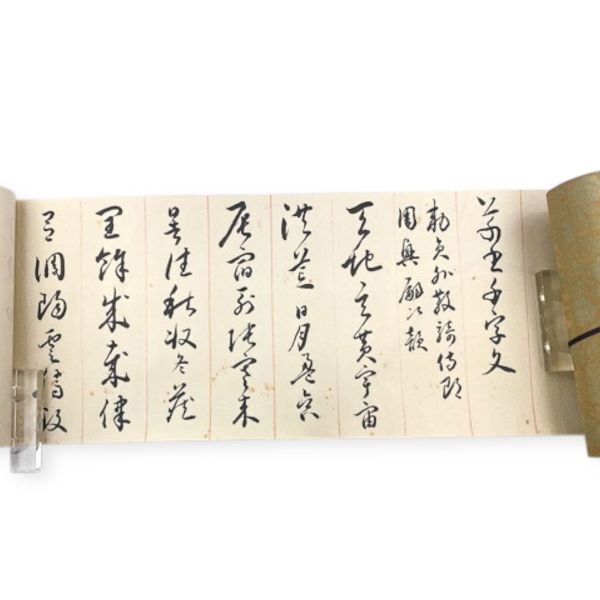 草書千字文
勅員外散騎侍郎
周興嗣次韻
天地玄黄宇宙
洪荒日月盈昃
辰宿列張寒来
暑往秋収冬蔵
閏餘成歳律
呂調陽雲騰致